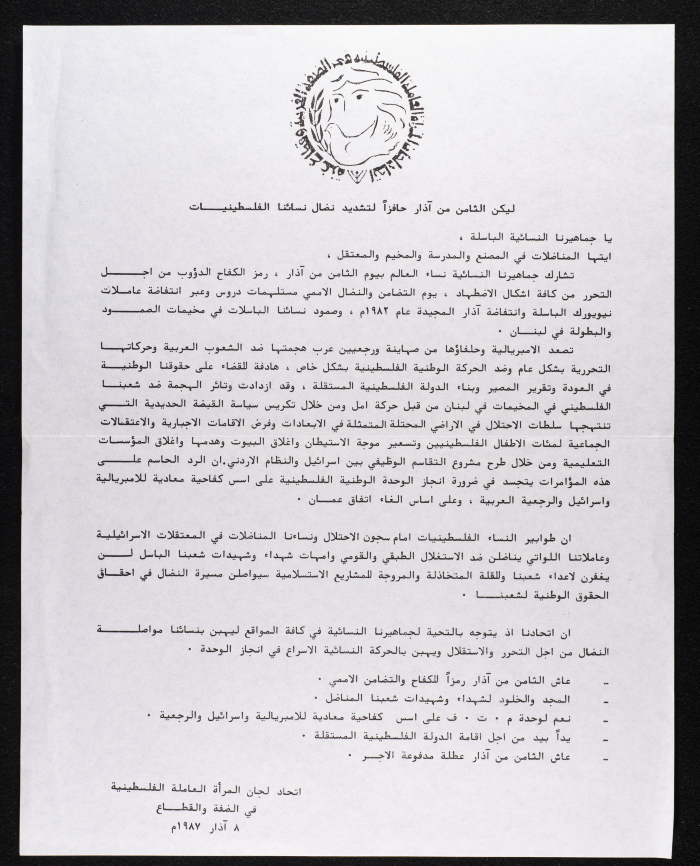 اتحاد لجان المرأة العاملة الفلسطينية في الضفة الغربية وقطاع غزة
ليكن الثامن من آذار حافزاً لتشديد نضال نسائنا الفلسطينيات
يا جماهيرنا النسائية الباسلة ،
ايتها المناضلات في المصنع والمدرسة والمخيم والمعتقل ،
تشارك جماهيرنا النسائية نساء العالم بيوم الثامن من آذار ، رمز الكفاح الدؤوب من اجل
التحرر من كافة اشكال الاضطهاد ، يوم التضامن والنضال الاممي مستلهمات دروس وعبر انتفاضة عاملات
نيويورك الباسلة وانتفاضة آذار المجيدة عام ١٩٨٢م ، وصمود نسائنا الباسلات في مخيمات الصمود
والبطولة في لبنان .
تصعد الامبريالية وحلفاؤها من صهاينة ورجعيين عرب هجمتها ضد الشعوب العربية وحركاتها
التحررية بشكل عام وضد الحركة الوطنية الفلسطينية بشكل خاص ، هادفة للقضاء على حقوقنا الوطنية
في العودة وتقرير المصير وبناء الدولة الفلسطينية المستقلة ، وقد ازدادت وتائر الهجمة ضد شعبنا
الفلسطيني في المخيمات في لبنان من قبل حركة امل ومن خلال تكريس سياسة القبضة الحديدية التي
تنتهجها سلطات الاحتلال في الاراضي المحتلة المتمثلة في الابعادات وفرض الاقامات الاجبارية والاعتقالات
الجماعية لمئات الاطفال الفلسطينيين وتسعير موجة الاستيطان واغلاق البيوت وهدمها واغلاق المؤسسات
التعليمية ومن خلال طرح مشروع التقاسم الوظيفي بين اسرائيل والنظام الاردني.ان الرد الحاسم على
هذه المؤامرات يتجسد في ضرورة انجاز الوحدة الوطنية الفلسطينية على اسس كفاحية معادية للامبريالية
واسرائيل والرجعية العربية ، وعلى اساس الغاء اتفاق عمان .
ان طوابير النساء الفلسطينيات امام سجون الاحتلال ونساءنا المناضلات في المعتقلات الاسرائيلية
وعاملاتنا اللواتي يناضلن ضد الاستغلال الطبقي والقومي وامهات شهداء وشهيدات شعبنا الباسل لن
يغفرن لاعداء شعبنا وللقلة المتخاذلة والمروجة للمشاريع الاستسلامية سيواصلن مسيرة النضال في احقاق
الحقوق الوطنية لشعبنا .
ان اتحادنا اذ يتوجه بالتحية لجماهيرنا النسائية في كافة المواقع ليهبن بنسائنا مواصلة
النضال من اجل التحرر والاستقلال ويهبن بالحركة النسائية الاسراع في انجاز الوحدة .
- عاش الثامن من آذار رمزاً للكفاح والتضامن الاممي .
- المجد والخلود لشهداء وشهيدات شعبنا المناضل .
- نعم لوحدة م . ت . ف على اسس كفاحية معادية للامبريالية واسرائيل والرجعية .
- يداً بيد من اجل اقامة الدولة الفلسطينية المستقلة .
- عاش الثامن من آذار عطلة مدفوعة الاجر .
اتحاد لجان المرأة العاملة الفلسطينية
في الضفة والقطاع
٨ آذار ١٩٨٧م